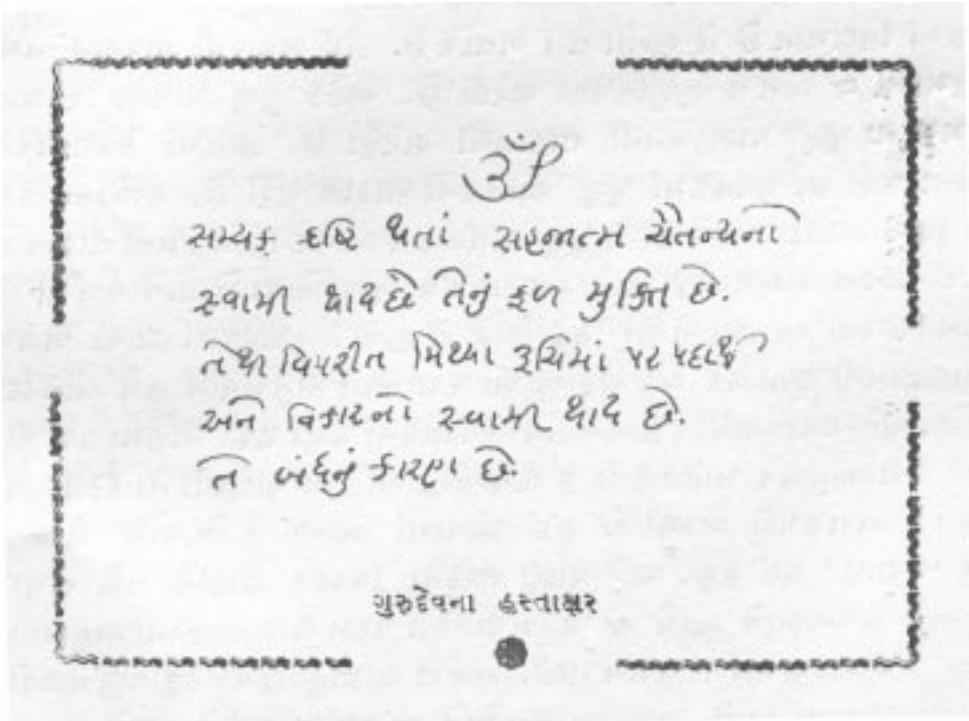 ૐ
સમ્યક દ્રષ્ટિ થતાં સહજાત્મ ચૈતન્યનો
સ્વામી થાય છે તેનું ફળ મુક્તિ છે.
તેથી વિપરીત મિથ્યા રૂચિમાં પર પદાર્થ
અને વિકારનો સ્વામી થાય છે.
તે બંધનું કારણ છે.
ગુરુદેવના હસ્તાક્ષર